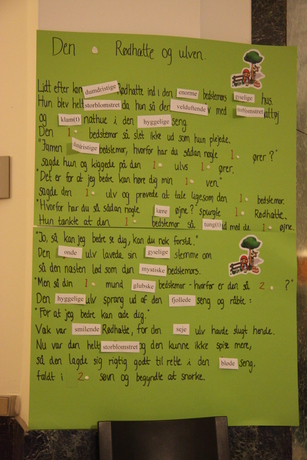 Den . Rødhætte og ulven.
Lidt efter kom dumdristige Rødhætte ind i den enorme bedstemors hus.
Hun blev helt storblomstret da hun så den velduflende med nattøj
og nathue i den hyggelige seng.
Den 1. bedstemor så slet ikke ud som hun plejede.
"Jamen bedstemor, hvorfor har du sådan nogle 1. ører?"
sagde hun og kiggede på den 1. ulvs 1. ører.
"Det er for at jeg bedre kan høre dig min 1. ven."
sagde den 1. ulv og prøvede at tale ligesom den 1. bedstemor.
"Hvorfor har du så sådan nogle øjne? spurgte 1. Rødhætte.
Hun tænkte at den 1. bedstemor så ud med de 1. øjne.
"Jo, så kan jeg bedre se dig, kan du nok forstå."
Den onde ulv lavede sin gyselige stemme om
så den næsten lød som den mystiske bedstemors.
"Men så din 1. mund glubske bedstemor - hvorfor er den så 2. ?"
Den hyggelige ulv sprang ud af den fjollede seng og råbte:
"For at jeg bedre kan æde dig."
Væk var smilende Rødhætte, for den seje ulv havde slugt hende.
Nu var den helt storblomstret og den kunne ikke spise mere,
så den lagde sig rigtig godt til rette i den bløde seng,
faldt i 2. søvn og begyndte at snorke.